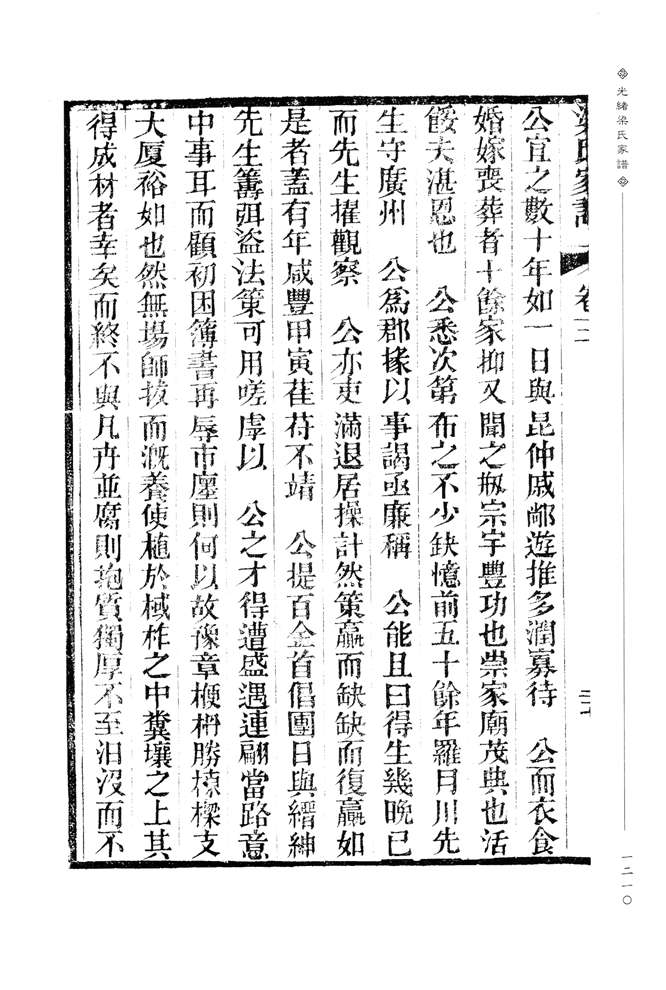 光緒梁氏家譜
一二一〇
梁氏家譜 卷三
公宜之數十年如一日與昆仲戚鄰遊推多潤寡待 公而衣食
婚嫁喪葬者十餘家抑又聞之剏宗宇豐功也崇家廟茂典也活
餒夫湛恩也 公悉次第布之不少缺憶前五十餘年羅月川先
生守廣州 公爲郡掾以事謁亟廉稱 公能且曰得生幾晚已
而先生擢觀察 公亦吏滿退居操計然策贏而缺缺而復贏如
是者蓋有年咸豐甲寅萑苻不靖 公提百金首倡團日與縉紳
先生籌弭盜法策可用嗟虖以 公之才得遭盛遇連翩當路意
中事耳而顧初困簿書再辱市廛則何以故豫章楩枏勝椋樑支
大厦裕如也然無場師拔而溉養使植於棫柞之中糞壤之上其
得成材者幸矣而終不與凡卉並腐則抱質獨厚不至汨沒而不